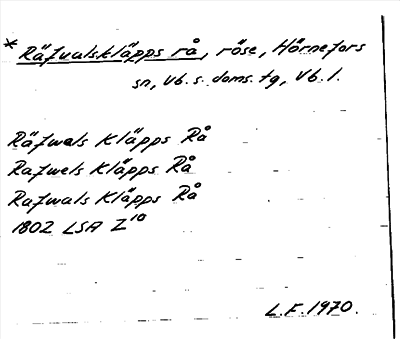 * Räfwalskläpps rå, röse, Hörnefors
sn, Vb. s. doms. tg, Vb. l.
Räfwals Kläpps Rå
Rafwels Kläpps Rå
Rafwals Kläpps Rå
1802 LSA Z¹⁰
L.F. 1970.